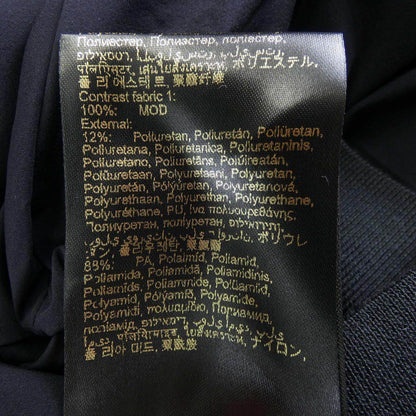 Полиестер, Полиэстер, поліестер,
पॉलिएस्टर, เส้นใยสังเคราะห์, ポリエステル,
폴리에스테르, 聚酯纖維
Contrast fabric 1:
100%: MOD
External:
12%: Poliuretan, Poliuretán, Poliüretan,
Poliuretana, Poliuretanica, Poliuretaninis,
Poliuretano, Poliuretāns, Polúireatán,
Polüuretaan, Polyuretaani, Polyuretan,
Polyuretán, Pólýúretan, Polyuretanová,
Polyurethaan, Polyurethan, Polyurethane,
Polyuréthane, PU, ίνα πολυουρεθάνης,
Полиуретан, поліуретан,
ポリウレ
タン, 폴리우레탄, 聚氨酯
88%: PA, Polaimíd, Poliamid,
Poliamida, Poliamidă, Poliamidinis,
Poliamīds, Poliammide, Poliamid,
Polyamid, Pólýamíð, Polyamide,
Polyamidi, πολυαμίδιο, Полиамид,
поліамід,
पॉलियामाइड, ใยสังเคราะห์, ナイロン,
폴리아미드, 聚酰胺